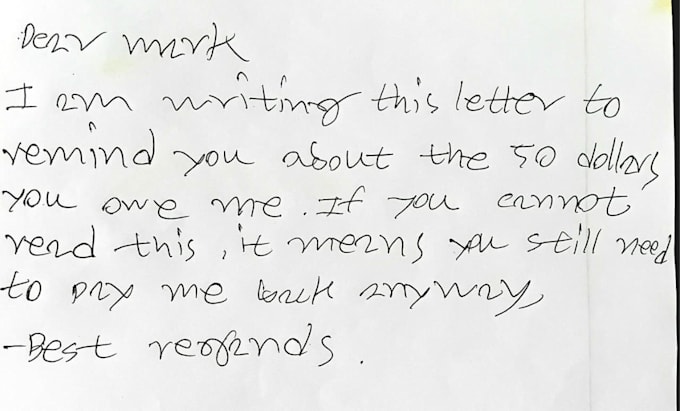 Dear mark
I am writing this letter to
remind you about the 50 dollars
you owe me. If you cannot
read this, it means you still need
to pay me back anyway,
-Best regards.